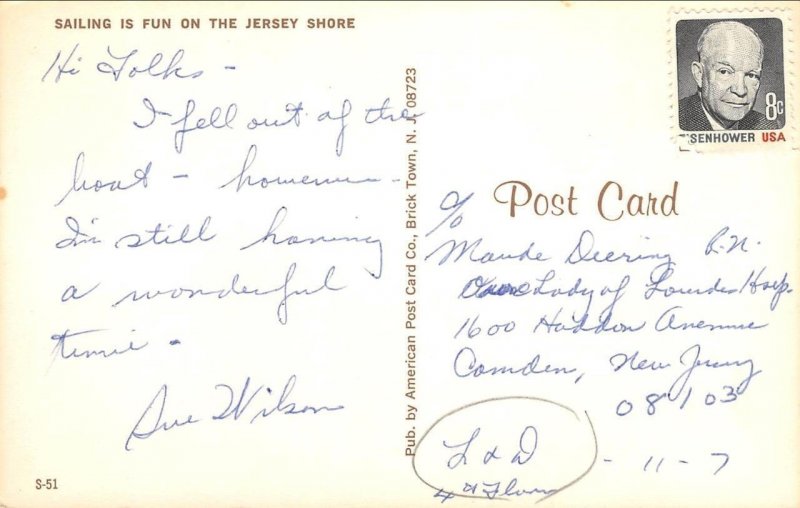 SAILING IS FUN ON THE JERSEY SHORE
Hi Folks -
I fell out of the
boat - however -
I'm still having
a wonderful
time -
Sue Wilson
S-51
Pub. by American Post Card Co., Brick Town, N. J. 08723
EISENHOWER USA
8c
Post Card
c/o
Maude Deering R.N.
Our Lady of Lourdes Hosp.
1600 Haddon Avenue
Camden, New Jersey
08103
L & D - 11-7
4th Floor